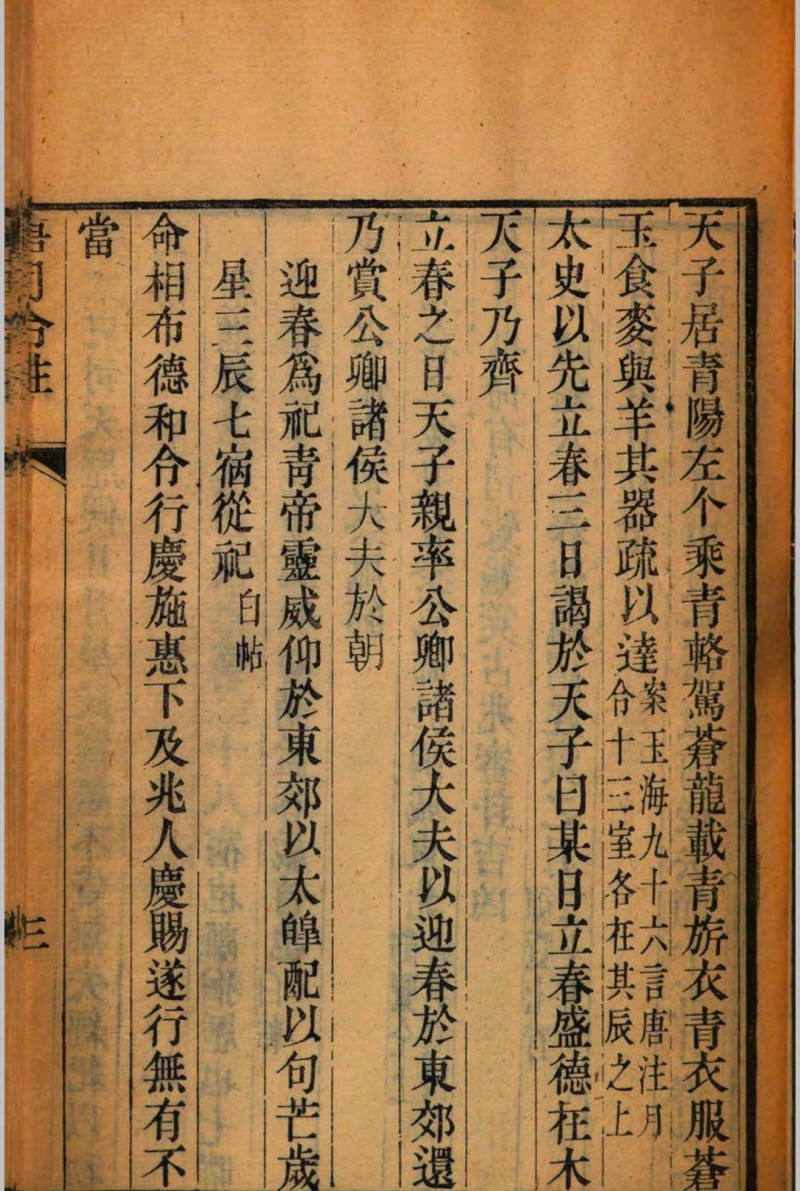 天子居青陽左个乘青輅駕蒼龍載青旂衣青衣服蒼
玉食麥與羊其器疏以達案玉海九十六言唐注月
令十三室各在其辰之上
太史以先立春三日謁於天子曰某日立春盛德在木
天子乃齊
立春之日天子親率公卿諸侯大夫以迎春於東郊還
乃賞公卿諸侯大夫於朝
迎春爲祀青帝靈威仰於東郊以太皞配以句芒歲
星三辰七宿從祀白帖
命相布德和令行慶施惠下及兆人慶賜遂行無有不
當
唐月令注
三